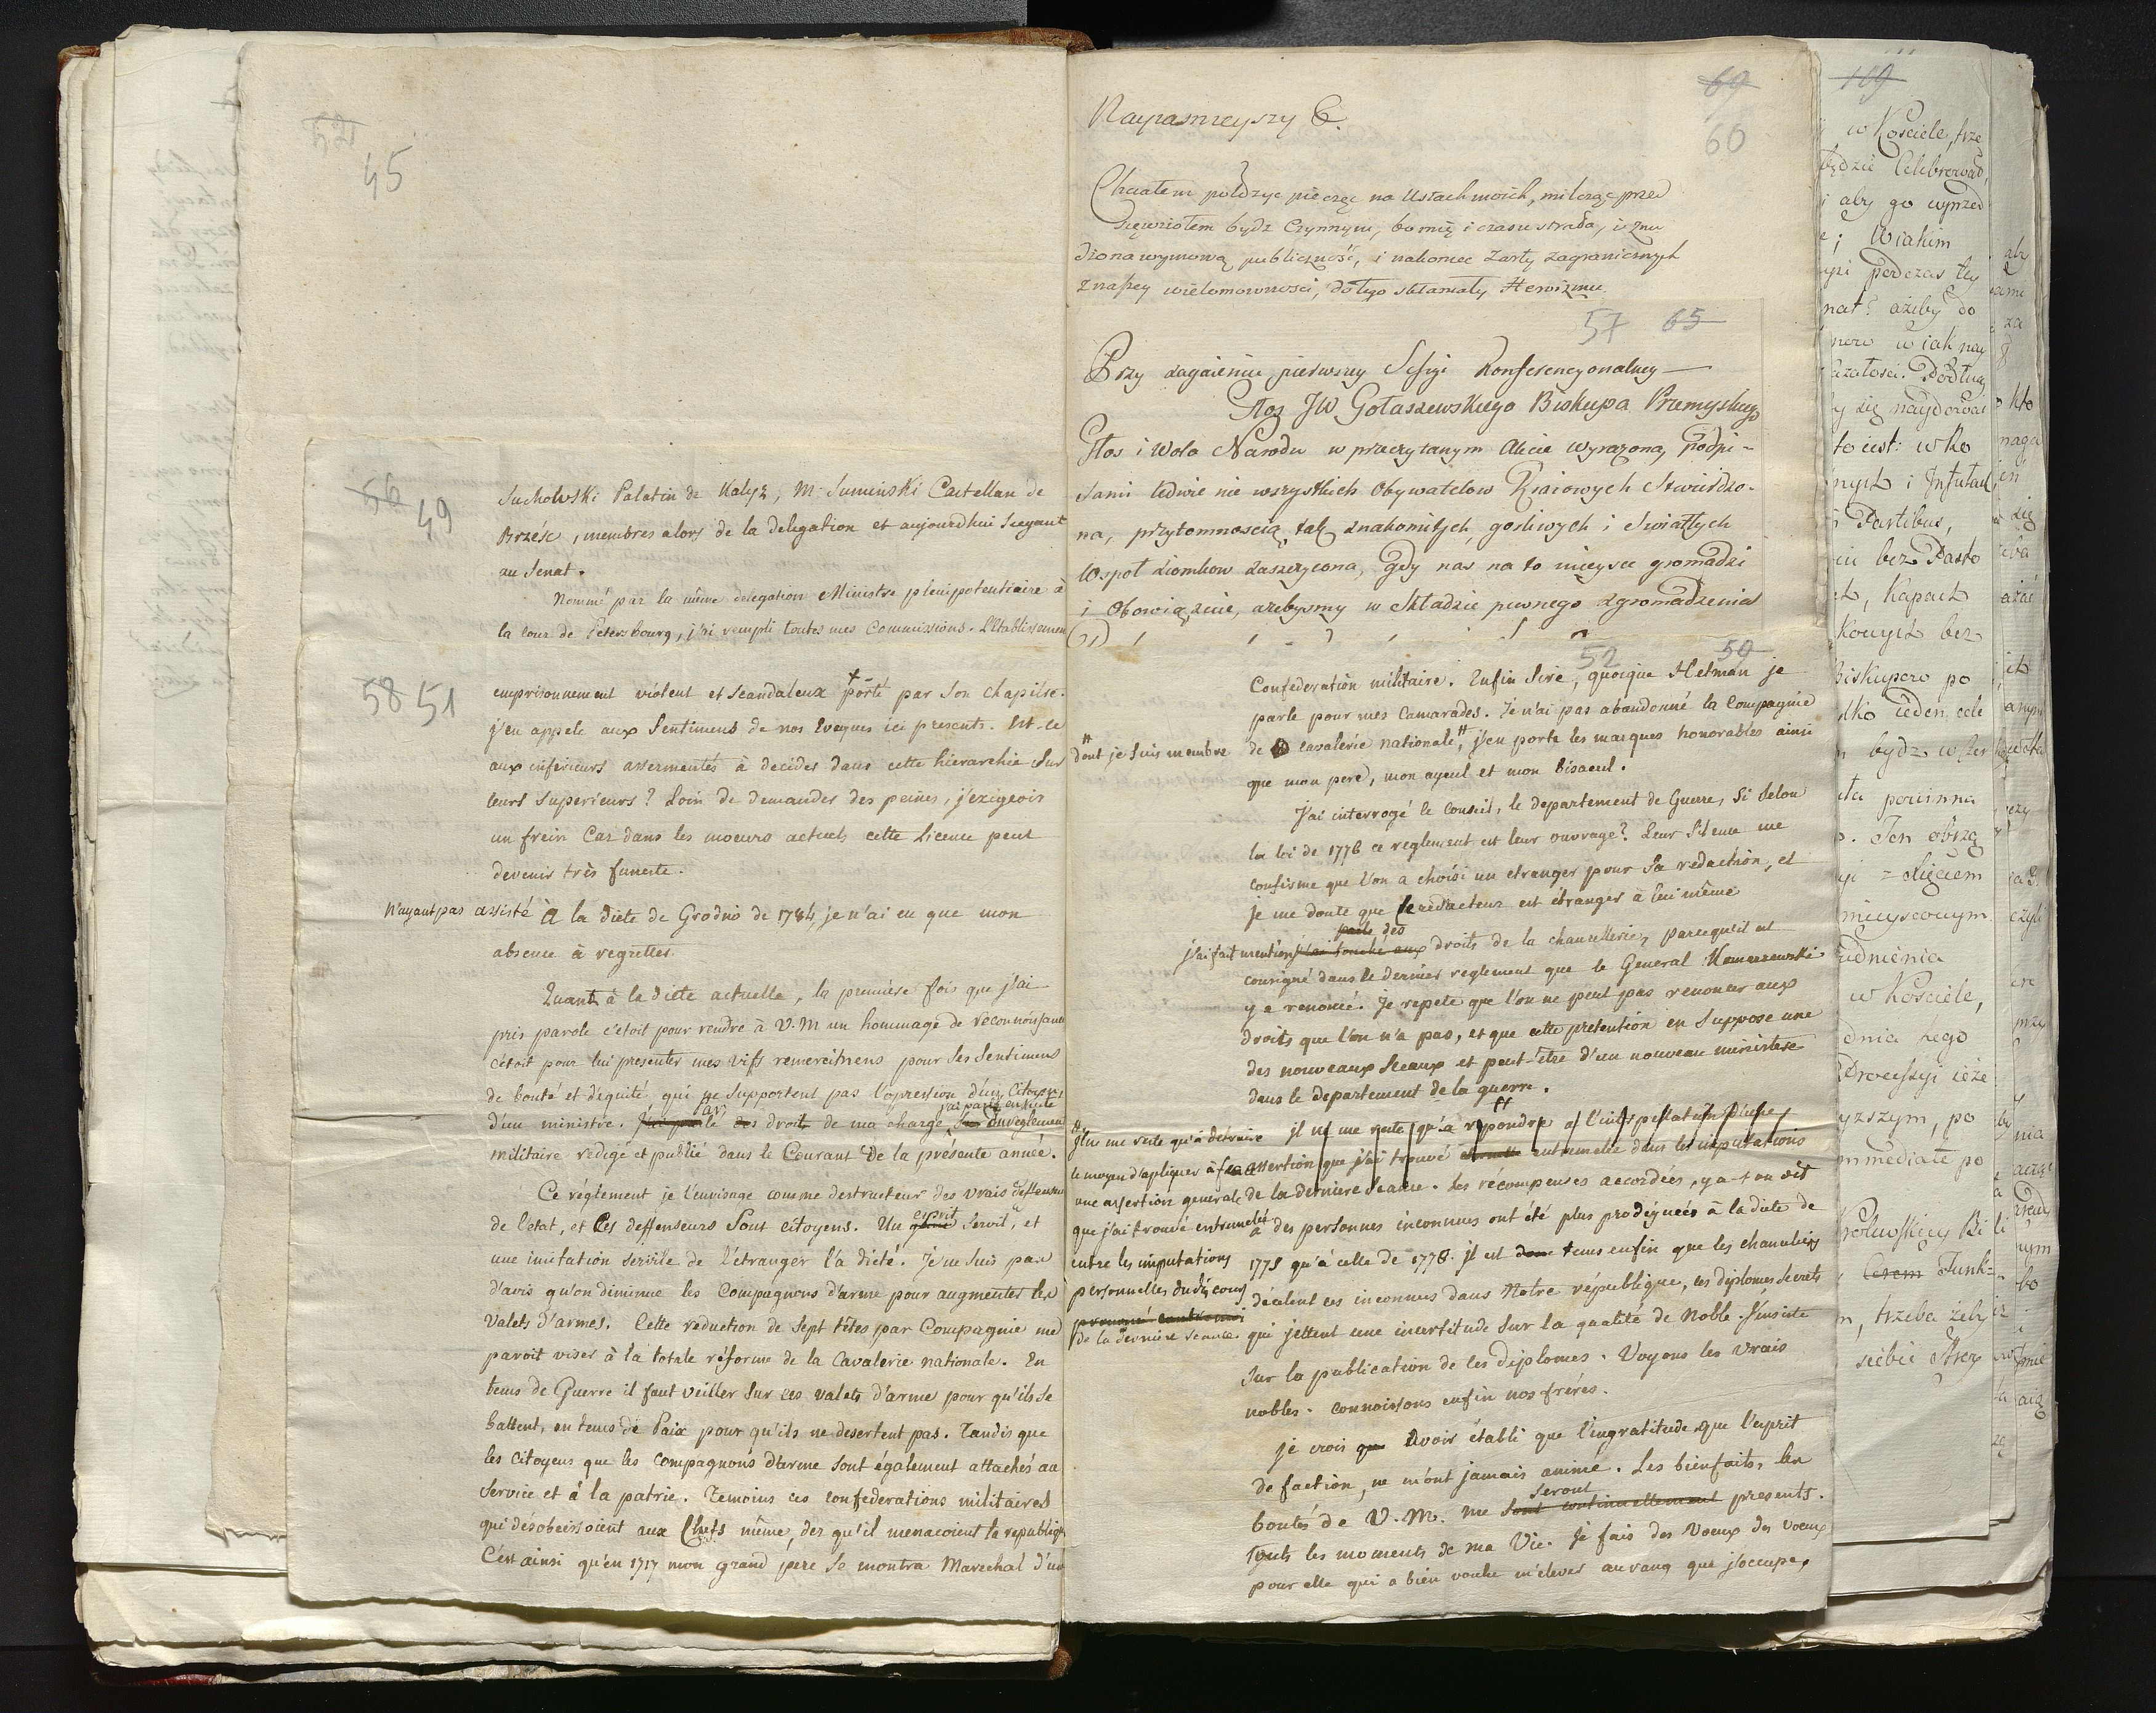 52
45
56 49
Sucholski Palatin de Kalisz, M. Suminski Castellan de
Brześc, membres alors de la delegation et aujourdhui Siegeant
au Senat.
Nommé par la même delegation Ministre plenipotentiaire à
la Cour de Petersbourg, j'ai rempli toutes mes Commissions. L'Etablissemen
58 51
emprisonnement violent et Scandaleux porté par Son chapitre.
j'en appele aux Sentimens de nos Eveques ici presents. Est-ce
aux inferieurs assermentés à decider dans cette hierarchie Sur
leurs Superieurs? Loin de demander des peines, j'exigeois
un frein Car dans les moeurs actuels cette Licence peut
devenir très funeste.
N'ayant pas assisté À la diete de Grodno de 1784, je n'ai eu que mon
absence à regretter.
Quant à la diete actuelle, la premiere fois que j'ai
pris parole c'étoit pour rendre à V.M un hommage de réconnoissance
c'étoit pour lui presenter mes vifs remercimens pour Ses Sentimens
de bonté et d'equité qui ne Supportent pas l'opression d'un Citoyen,
d'un ministre. droit de ma charge, j'ai parlé ensuite du reglement
militaire redigé et publié dans le Courant de la présente année.
Ce réglement je l'envisage comme destructeur des vrais deffenseurs
de l'etat, et Ces deffenseurs Sont citoyens. Un esprit Servil, et
une imitation servile de l'étranger l'a dicté. Je ne Suis pas
d'avis qu'on diminue les Compagnons d'arme pour augmenter les
Valets d'armes. Cette reduction de Sept têtes par Compagnie me
paroit viser à la totale réforme de la Cavalerie nationale. En
tems de Guerre il faut veiller Sur ces valets d'arme pour qu'ils Se
battent, en tems de Paix pour qu'ils ne desertent pas. Tandis que
les Citoyens que les Compagnons d'arme Sont également attachés au
Service et à la patrie. Temoins ces confederations militaires
qui désobeissoient aux Chefs même, des qu'il menacoient la republiq
C'est ainsi qu'en 1717 mon grand pere Se montra Marechal d'un
69
60
Nayiasnieyszy
Chciałem położyć pieczęc na Ustach moich, milcząc przed
sięwziołem bydz Czynnym, bo mię i czasu strata, i znu
dzona wymową publiczność, i nakoniec żarty zagranicznych
z naszey wielomowności, do tego skłaniały Heroizmu
57 65
Przy zagaieniu pierwszey Sessyi Konferencyonalney
Głos JW Gołaszewskiego Biskupa Przemyskiego
Głos i Wola Narodu w przeczytanym Akcie wyrazona, podpi-
sami ledwie nie wszystkich Obywatelow Kraiowych Stwierdzo-
na, przytomnoscią tak znakomitych, gorliwych i Swiatłych
Wspoł ziomkow zaszczycona, Gdy nas na to mieysce gromadzi
i Obowiązuie, azebysmy w Składzie pewnego zgromadzenia
52 59
Confederation militaire. Enfin Sire, quoique Hetman je
parle pour mes Camarades. Je n'ai pas abandonné la Compagnie
dont je Suis membre
de cavalerie nationale, j'en porte les marques honorables ainsi
que mon pere, mon ayeul et mon bisaeul.
J'ai interrogé le Conseil, le departement de Guerre, Si Selon
la loi de 1776 ce reglement est leur ouvrage? Leur Silence me
confirme que l'on a choisi un etranger pour Sa redaction, et
je me doute que le redacteur est étranger à lui même
j'ai fait mention des droits de la chancellerie, parcequ'il est
consigné dans le dernier reglement que le General Komarzewski
y a renoncé. Je repete que l'on ne peut pas renoncer aux
droits que l'on n'a pas, et que cette pretention en Suppose une
des nouveaux Sceaux et peut-être d'un nouveau ministere
dans le departement de la guerre.
Il ne me reste qu'à détruire
le moyen d'apliquer à
une assertion generale
que j'ai trouvé entremelée
entre les imputations
personnelles du discours
de la derniere Seance
il ne me reste qu'à repondre à
assertion que j'ai trouvé entremelée dans les imputations
de la derniere Seance. Les récompenses accordées, y a-t-on dit
à des personnes inconnues ont été plus prodiguées à la diete de
1775 qu'à celle de 1778. il est tems enfin que les chanceliers
décelent ces inconnus dans Notre république, ces diplomes Secrets
qui jettent une incertitude Sur la qualité de Noble. J'insiste
Sur la publication de ces Diplomes. Voyons les vrais
nobles. connoissons enfin nos fréres.
je crois Avoir établi que l'ingratitude, que l'esprit
de faction, ne m'ont jamais animé. Les bienfaits, les
bontés de V.M. me seront presents.
Touts les moments de ma Vie. Je fais des Voeux des voeux
pour elle qui a bien voulu m'élever au rang que j'occupe,
109
w Kosciele, prze
będzie Celebrował,
i aby go wprzed
Wiakim
podczas tey
nat? ażeby do
w iak nay
to iest: w Ko
i Infułach
Partibus,
bez Pasto
Kapach
bez
Biskupow po
bydz w Ser
powinna
Ten obrzą
w Kosciele,
dnia tego
Processyi ieże
yzszym, po
mmediate po
trzeba żeby
siebie